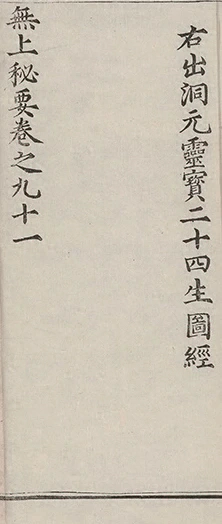 右出洞元靈寶二十四生圖經
無上秘要卷之九十一